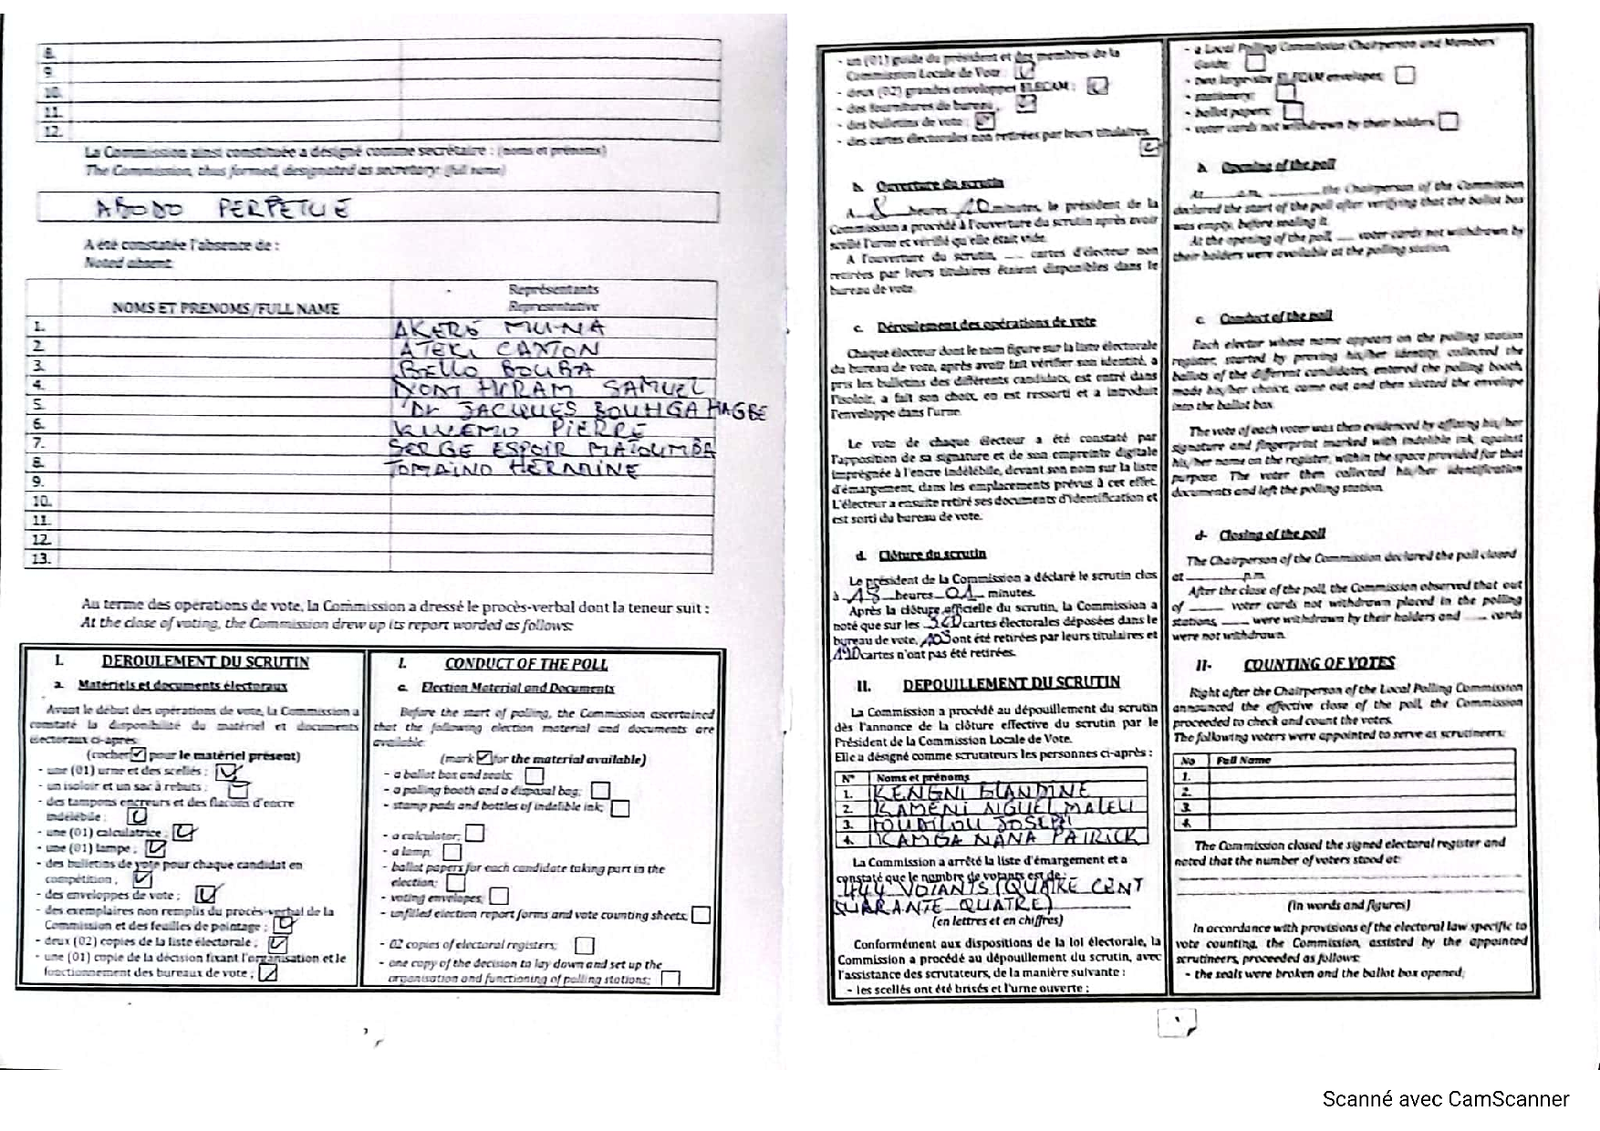 8.
9.
10.
11.
12.
La Commission ainsi constituée a désigné comme secrétaire : (noms et prénoms)
The Commission, thus formed, designated as secretary: (full name)
ABODO PERPETUE
A été constatée l'absence de :
Noted absent:
NOMS ET PRENOMS/FULL NAME
Représentants
Representative
1. AKERE MUNA
2. ATEKI CAXTON
3. BELLO BOUBA
4. HIRAM SAMUEL
5. Dr JACQUES BOUHGA HAGBE
6. PIERRE
7. SERGE ESPOIR MATOUMBA
8. TOMAINO HERMINE
9.
10.
11.
12.
13.
Au terme des opérations de vote, la Commission a dressé le procès-verbal dont la teneur suit :
At the close of voting, the Commission drew up its report worded as follows:
I. DEROULEMENT DU SCRUTIN
a. Matériels et documents électoraux
Avant le début des opérations de vote, la Commission a
constaté la disponibilité du matériel et documents
électoraux ci-après:
(cocher ✓ pour le matériel présent)
- une (01) urne et des scellés ;
- un isoloir et un sac à rebuts ;
- des tampons encreurs et des flacons d'encre
indélébile :
- une (01) calculatrice ;
- une (01) lampe ;
- des bulletins de vote pour chaque candidat en
compétition ;
- des enveloppes de vote ;
- des exemplaires non remplis du procès-verbal de la
Commission et des feuilles de pointage ;
- deux (02) copies de la liste électorale ;
- une (01) copie de la décision fixant l'organisation et le
fonctionnement des bureaux de vote ;
I. CONDUCT OF THE POLL
a. Election Material and Documents
Before the start of polling, the Commission ascertained
that the following election material and documents are
available:
(mark ✓ for the material available)
- a ballot box and seals;
- a polling booth and a disposal bag;
- stamp pads and bottles of indelible ink;
- a calculator;
- a lamp;
- ballot papers for each candidate taking part in the
election;
- voting envelopes;
- unfilled election report forms and vote counting sheets;
- 02 copies of electoral registers;
- one copy of the decision to lay down and set up the
organisation and functioning of polling stations;
- un (01) guide du président et des membres de la
Commission Locale de Vote :
- deux (02) grandes enveloppes ELECAM ;
- des fournitures de bureau ;
- des bulletins de vote ;
- des cartes électorales non retirées par leurs titulaires.
b. Ouverture du scrutin
A 8 heures 20 minutes, le président de la
Commission a procédé à l'ouverture du scrutin après avoir
scellé l'urne et vérifié qu'elle était vide.
A l'ouverture du scrutin, ___ cartes d'électeur non
retirées par leurs titulaires étaient disponibles dans le
bureau de vote.
c. Déroulement des opérations de vote
Chaque électeur dont le nom figure sur la liste électorale
du bureau de vote, après avoir fait vérifier son identité, a
pris les bulletins des différents candidats, est entré dans
l'isoloir, a fait son choix, en est ressorti et a introduit
l'enveloppe dans l'urne.
Le vote de chaque électeur a été constaté par
l'apposition de sa signature et de son empreinte digitale
imprégnée à l'encre indélébile, devant son nom sur la liste
d'émargement, dans les emplacements prévus à cet effet.
L'électeur a ensuite retiré ses documents d'identification et
est sorti du bureau de vote.
d. Clôture du scrutin
Le président de la Commission a déclaré le scrutin clos
à 18 heures 01 minutes.
Après la clôture officielle du scrutin, la Commission a
noté que sur les cartes électorales déposées dans le
bureau de vote, ont été retirées par leurs titulaires et
cartes n'ont pas été retirées.
II. DEPOUILLEMENT DU SCRUTIN
La Commission a procédé au dépouillement du scrutin
dès l'annonce de la clôture effective du scrutin par le
Président de la Commission Locale de Vote.
Elle a désigné comme scrutateurs les personnes ci-après :
N° Noms et prénoms
1. KENGNI BLANDINE
2. KAMENI
3. JOSEPH
4. KAMGA NANA PATRICK
La Commission a arrêté la liste d'émargement et a
constaté que le nombre de votants est de :
444 VOTANTS (QUATRE CENT
QUARANTE-QUATRE)
(en lettres et en chiffres)
Conformément aux dispositions de la loi électorale, la
Commission a procédé au dépouillement du scrutin, avec
l'assistance des scrutateurs, de la manière suivante :
- les scellés ont été brisés et l'urne ouverte ;
- a Local Polling Commission Chairperson and Members'
Guide;
- two large-size ELECAM envelopes;
- stationery;
- ballot papers;
- voter cards not withdrawn by their holders
b. Opening of the poll
At ___ a.m. ___ the Chairperson of the Commission
declared the start of the poll after verifying that the ballot box
was empty, before sealing it.
At the opening of the poll, ___ voter cards not withdrawn by
their holders were available at the polling station.
c. Conduct of the poll
Each elector whose name appears on the polling station
register, started by proving his/her identity, collected the
ballots of the different candidates, entered the polling booth,
made his/her choice, came out and then slotted the envelope
into the ballot box.
The vote of each voter was then evidenced by affixing his/her
signature and fingerprint marked with indelible ink, against
his/her name on the register, within the space provided for that
purpose. The voter then collected his/her identification
documents and left the polling station.
d- Closing of the poll
The Chairperson of the Commission declared the poll closed
at ___ p.m.
After the close of the poll, the Commission observed that out
of ___ voter cards not withdrawn placed in the polling
stations, ___ were withdrawn by their holders and ___ cards
were not withdrawn.
II- COUNTING OF VOTES
Right after the Chairperson of the Local Polling Commission
announced the effective close of the poll, the Commission
proceeded to check and count the votes.
The following voters were appointed to serve as scrutineers:
No Full Name
1.
2.
3.
4.
The Commission closed the signed electoral register and
noted that the number of voters stood at:
(in words and figures)
In accordance with provisions of the electoral law specific to
vote counting, the Commission, assisted by the appointed
scrutineers, proceeded as follows:
- the seals were broken and the ballot box opened;
Scanné avec CamScanner